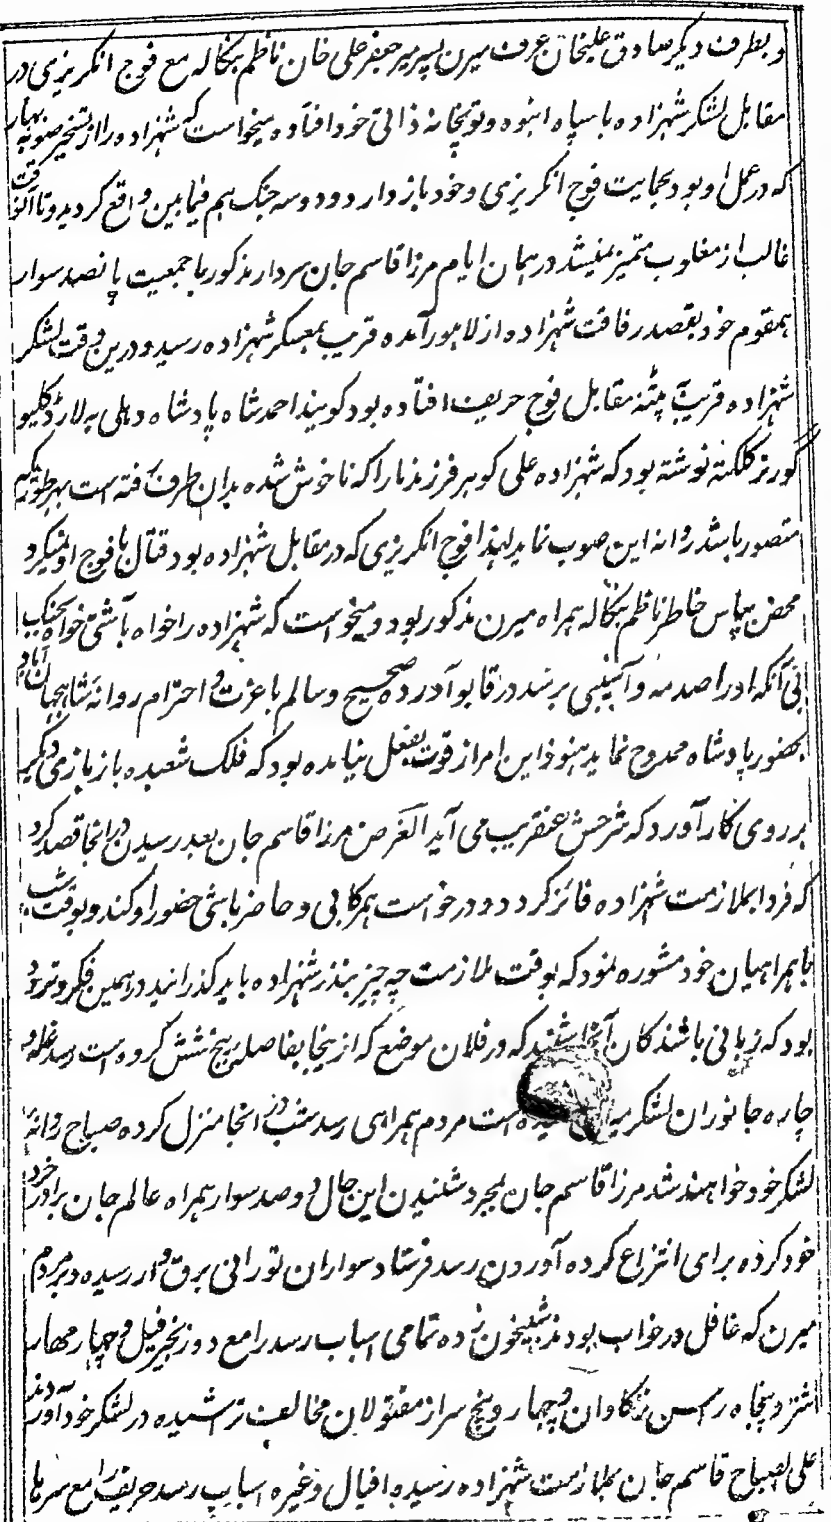 و بطرف دیکر صادق علیخان عرف میرن پسر میر جعفر علی خان ناظم بنکاله مع فوج انکریزی در
مقابل لشکر شهزاده با سپاه انبوه و توپخانهٔ ذاتی خود افتاده میخواست که شهزاده را از تسخیر صوبه بهار
که در عمل او بود بحمایت فوج انکریزی و خود باز دارد و دو سه جنک هم فیمابین واقع کردید و تا آنوقت
غالب از مغلوب متمیز نمیشد در همان ایام مرزا قاسم جان سردار مذکور با جمعیت پانصد سوار
همقوم خود بقصد رفاقت شهزاده از لاهور آمده قریب بمعسکر شهزاده رسید و درین وقت لشکر
شهزاده قریب پتنه مقابل فوج حریف افتاده بود کویند احمد شاه پادشاه دهلی به لارد کلیو
کورنر کلکته نوشته بود که شهزاده علی کوهر فرزند ما را که ناخوش شده بدان طرف رفته است بهر طوریکه
متصور باشد روانه این صوب نماید لهذا فوج انکریزی که در مقابل شهزاده بود قتال با فوج او نمیکرد
محض بپاس خاطر ناظم بنکاله همراه میرن مذکور بود و میخواست که شهزاده را خواه بآشتی خواه بجنک
بی آنکه او را صدمه و آسیبی برسد در قابو آورده صحیح و سالم با عزت و احترام روانه شاهجهان آباد
بحضور پادشاه ممدوح نماید هنوز این امر از قوت بفعل نیامده بود که فلک شعبده باز بازی دیکر
بر روی کار آورد که شرحش عنقریب می آید الغرض مرزا قاسم جان بعد رسیدن در آنجا قصد کرد
که فردا بملازمت شهزاده فائز کردد و درخواست همرکابی و حاضر باشی حضور او کند و بوقت شب
با همراهیان خود مشوره نمود که بوقت ملازمت چه چیز بنذر شهزاده باید کذرانید در همین فکر و تردد
بود که زبانی باشندکان آنجا شنید که در فلان موضع که از ینجا بفاصله پنج شش کروه است رسد غله و
چاره جانوران لشکر است مردم همراهی رسد شب در آنجا منزل کرده صباح روانهٔ
لشکر خود خواهند شد مرزا قاسم جان بمجرد شنیدن این حال دوصد سوار همراه عالم جان برادر خرد
خود کرده برای انتزاع کرده آوردن رسد فرستاد سواران تورانی برق وار رسیده بر مردم
میرن که غافل در خواب بودند شبیخون زده تمامی اسباب رسد را مع دو زنجیر فیل و چهار مهار
اشتر و پنجاه راس نرکاوان و چهار و پنج سر از مقتولان مخالف تراشیده در لشکر خود آوردند
علی الصباح قاسم جان بملازمت شهزاده رسیده افیال و غیره اسباب رسد حریف را مع سرها